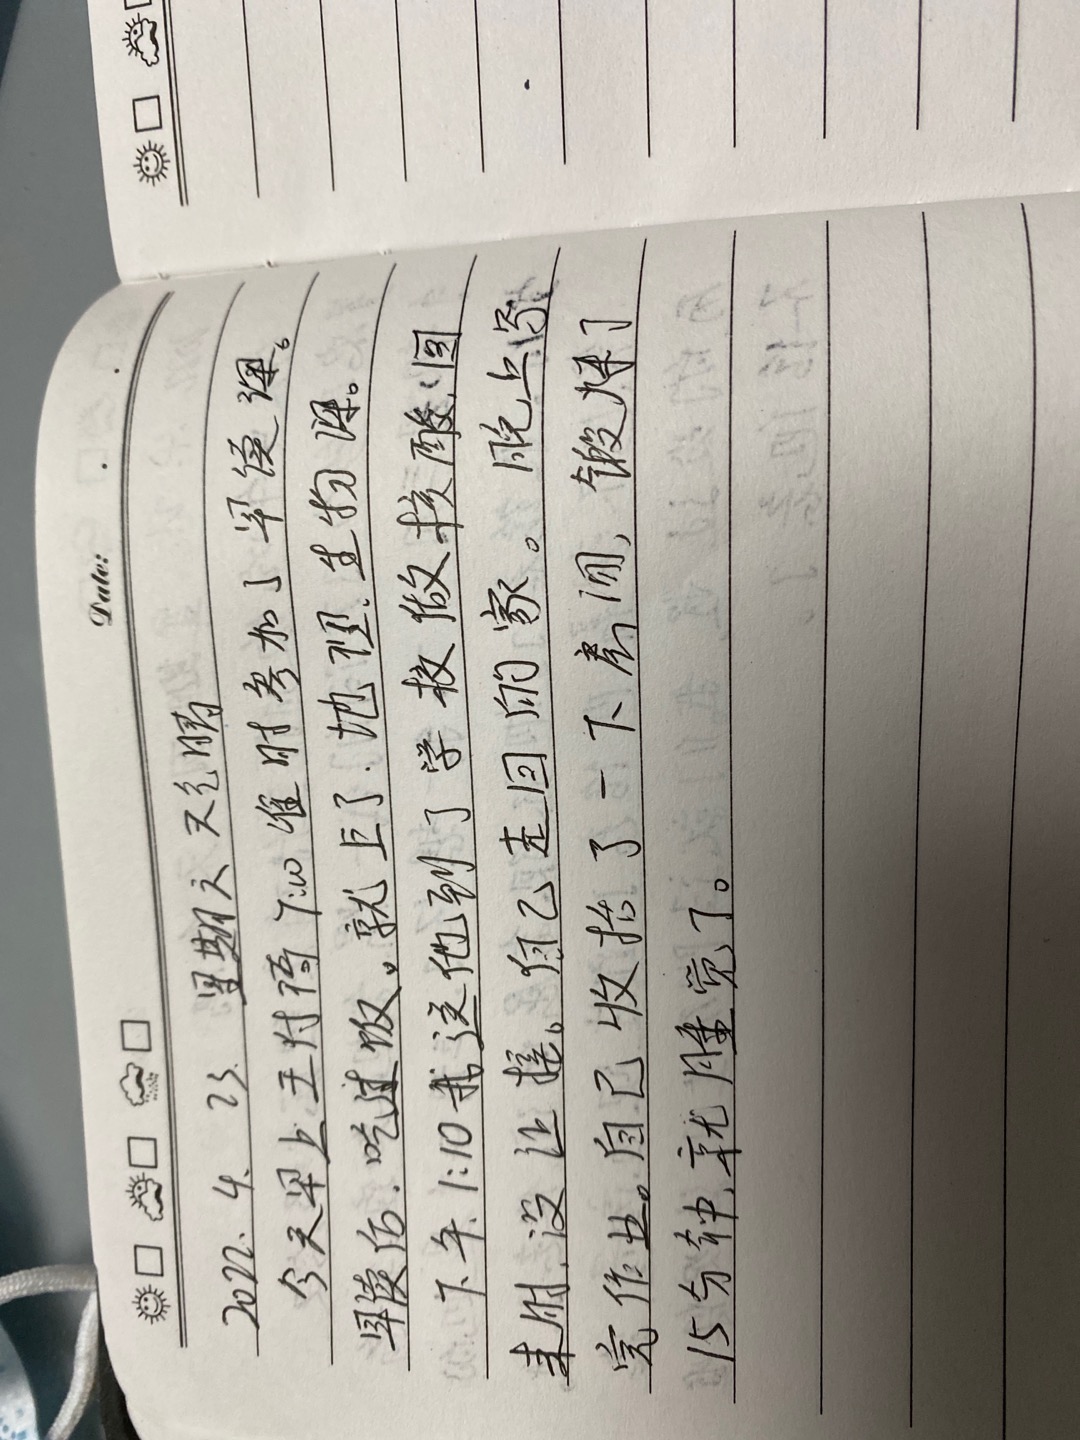 Date:
2022.4.23. 星期六 天气晴
今天早上王付 7:10 准时参加了早读课。
早读后.吃过饭。就上了.地理.生物课。
下午1:10我送他到了学校做核酸,回
来时.没让接。自己走回的家。晚上写
完作业。自己收拾了一下房间,锻炼了
15分钟.就睡觉了。